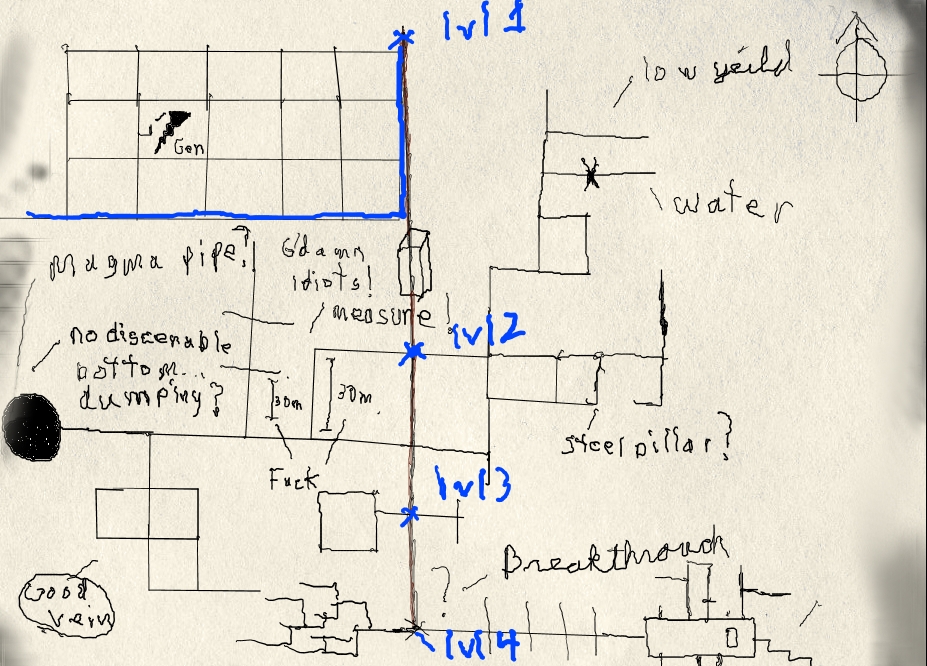 lvl 1
low yeild
Gen
water
magma pipe?
G'damn
idiots!
measure!
lvl 2
no discenable
bottom...
dumping?
30m
30m.
steel pillar?
Fuck
lvl 3
Breakthrough
?
Good
vein
lvl 4